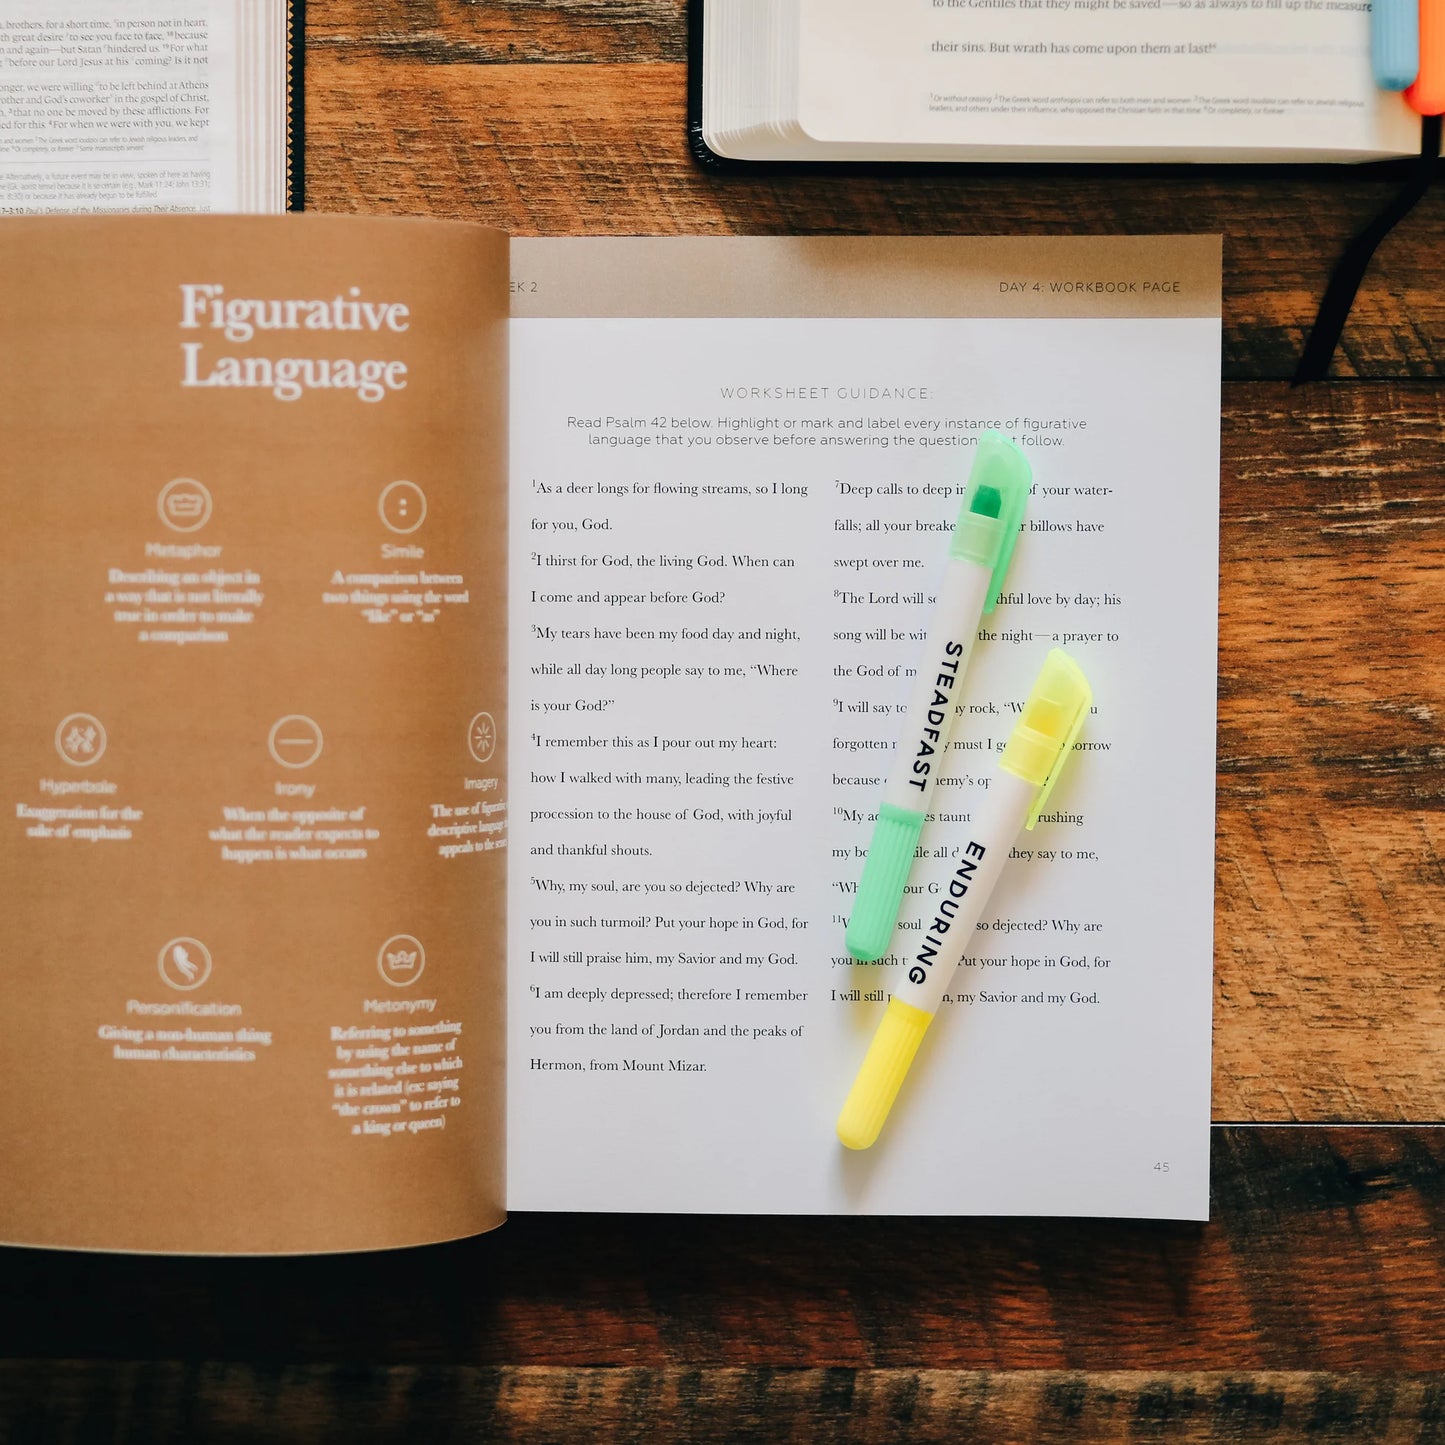 brothers, for a short time, in person not in heart,
th great desire to see you face to face, 18 because
n and again—but Satan hindered us. 19 For what
before our Lord Jesus at his coming? Is it not
onger, we were willing to be left behind at Athens
other and God's coworker in the gospel of Christ,
3 that no one be moved by these afflictions. For
ed for this. 4 For when we were with you, we kept
Alternatively, a future event may be in view, spoken of here as having
because it is so certain (e.g., Mark 11:24; John 13:31;
8:30) or because it has already begun to be fulfilled.
7–3:10 Paul's Defense of the Missionaries during Their Absence. Just
to the Gentiles that they might be saved—so as always to fill up the measure
their sins. But wrath has come upon them at last!
1 Or without ceasing 2 The Greek word anthropoi can refer to both men and women 3 The Greek word Ioudaioi can refer to Jewish religious
leaders, and others under their influence, who opposed the Christian faith in that time 4 Or completely, or forever
Figurative
Language
Metaphor
Describing an object in
a way that is not literally
true in order to make
a comparison
Simile
A comparison between
two things using the word
"like" or "as"
Hyperbole
Exaggeration for the
sake of emphasis
Irony
When the opposite of
what the reader expects to
happen is what occurs
Imagery
The use of
descriptive language
appeals to the
Personification
Giving a non-human thing
human characteristics
Metonymy
Referring to something
by using the name of
something else to which
it is related (ex: saying
"the crown" to refer to
a king or queen)
EK 2
DAY 4: WORKBOOK PAGE
WORKSHEET GUIDANCE:
Read Psalm 42 below. Highlight or mark and label every instance of figurative
language that you observe before answering the question follow.
1 As a deer longs for flowing streams, so I long
for you, God.
2 I thirst for God, the living God. When can
I come and appear before God?
3 My tears have been my food day and night,
while all day long people say to me, “Where
is your God?”
4 I remember this as I pour out my heart:
how I walked with many, leading the festive
procession to the house of God, with joyful
and thankful shouts.
5 Why, my soul, are you so dejected? Why are
you in such turmoil? Put your hope in God, for
I will still praise him, my Savior and my God.
6 I am deeply depressed; therefore I remember
you from the land of Jordan and the peaks of
Hermon, from Mount Mizar.
7 Deep calls to deep in of your water-
falls; all your breake r billows have
swept over me.
8 The Lord will se thful love by day; his
song will be wit the night—a prayer to
the God of m
9 I will say to my rock, “W u
forgotten must I go sorrow
because emy’s op
10 My ad es taunt rushing
my bo ile all d they say to me,
“Wh our G
11 W soul so dejected? Why are
you in such t Put your hope in God, for
I will still p m, my Savior and my God.
45
STEADFAST
ENDURING